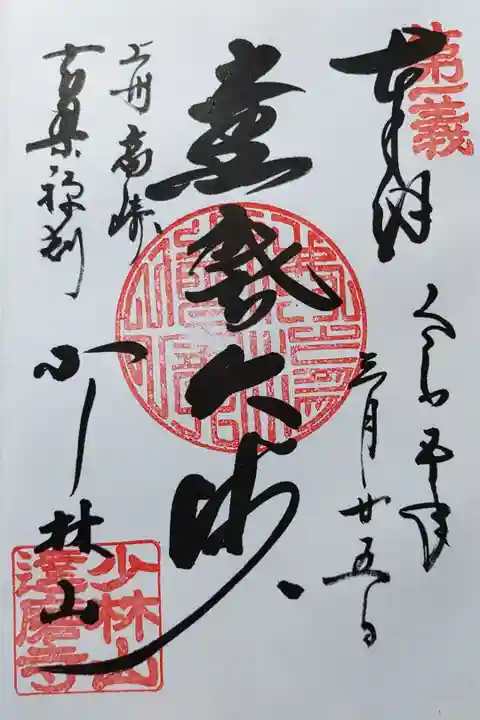 第一義
奉拝
令和五年
三月廿五日
大師
上州高崎
黄檗禅刹
少林山
少林山
達磨寺